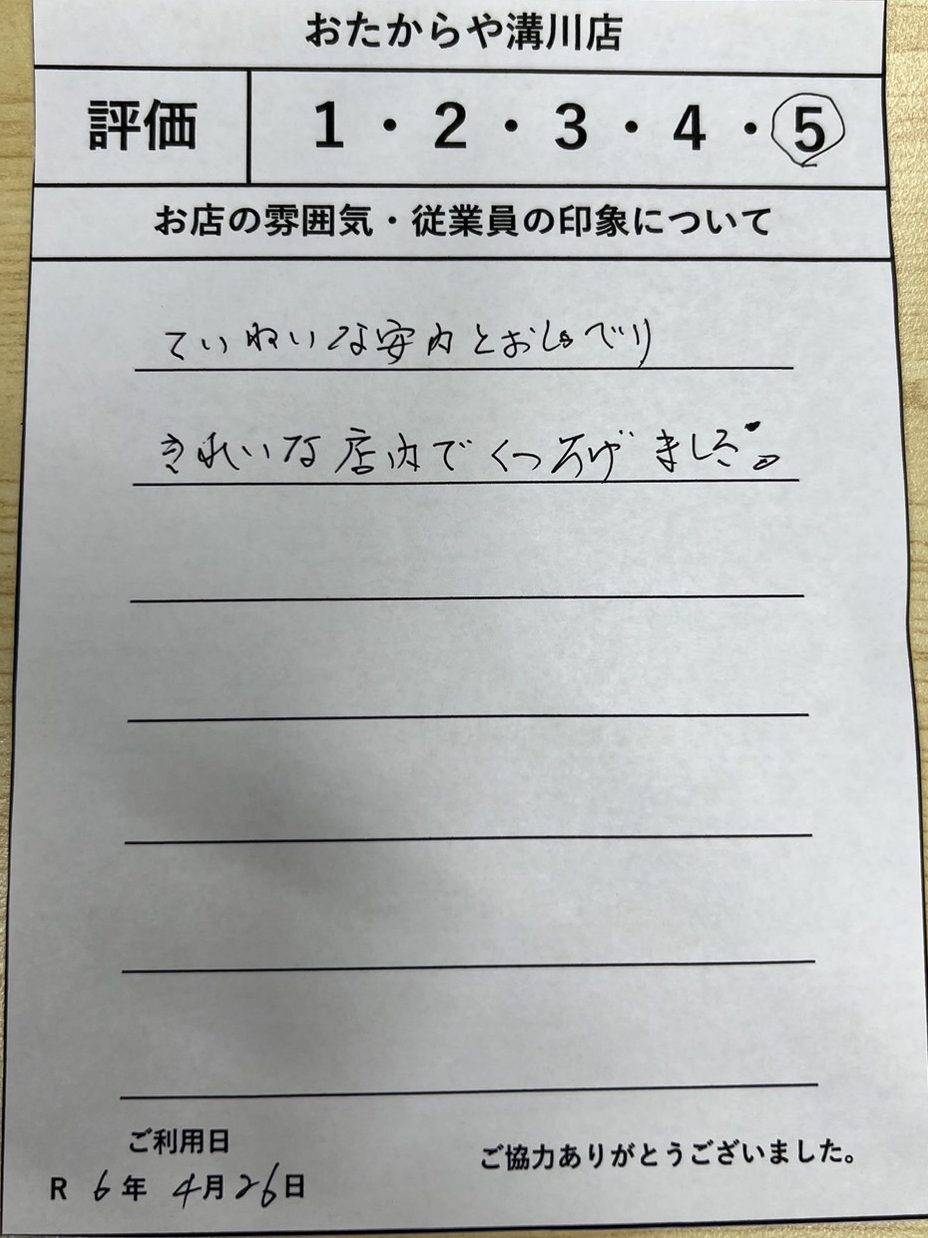 おたからや溝川店
評価 1・2・3・4・5
お店の雰囲気・従業員の印象について
ていねいな安内とおしゃべり
きれいな店内でくつろげました。
ご利用日
ご協力ありがとうございました。
R 6年 4月26日